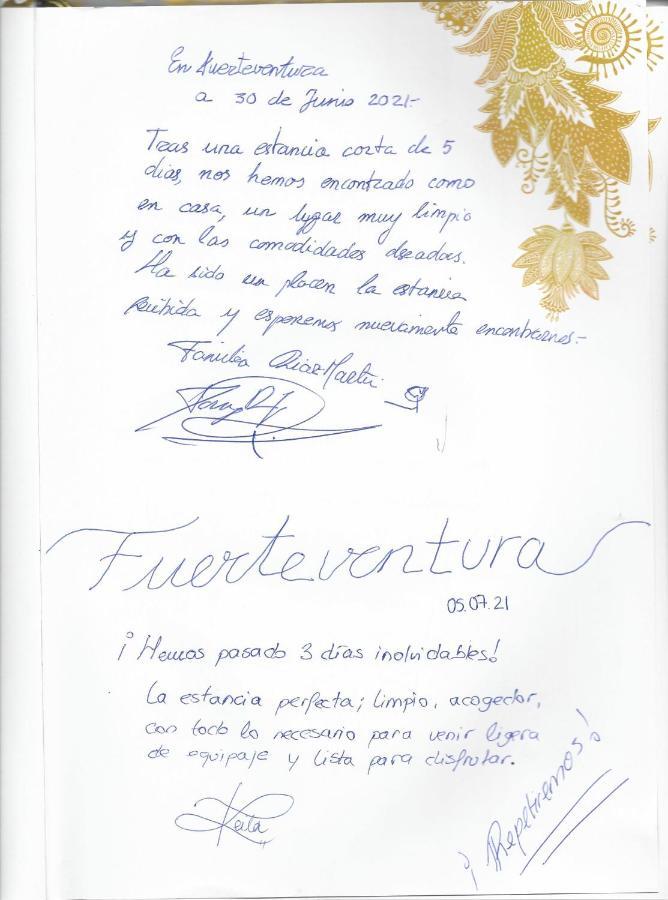 En Fuerteventura
a 30 de Junio 2021.-
Tras una estancia corta de 5
dias, nos hemos encontrado como
en casa, un lugar muy limpio
y con las comodidades deseadas.
Ha sido un placer la estancia
recibida y esperemos nuevamente encontrarnos.-
Familia Diaz Martin
Fuerteventura
05.07.21
¡Hemos pasado 3 días inolvidables!
La estancia perfecta; limpio, acogedor,
con todo lo necesario para venir ligera
de equipaje y lista para disfrutar.
Keila
¡Repetiremos!